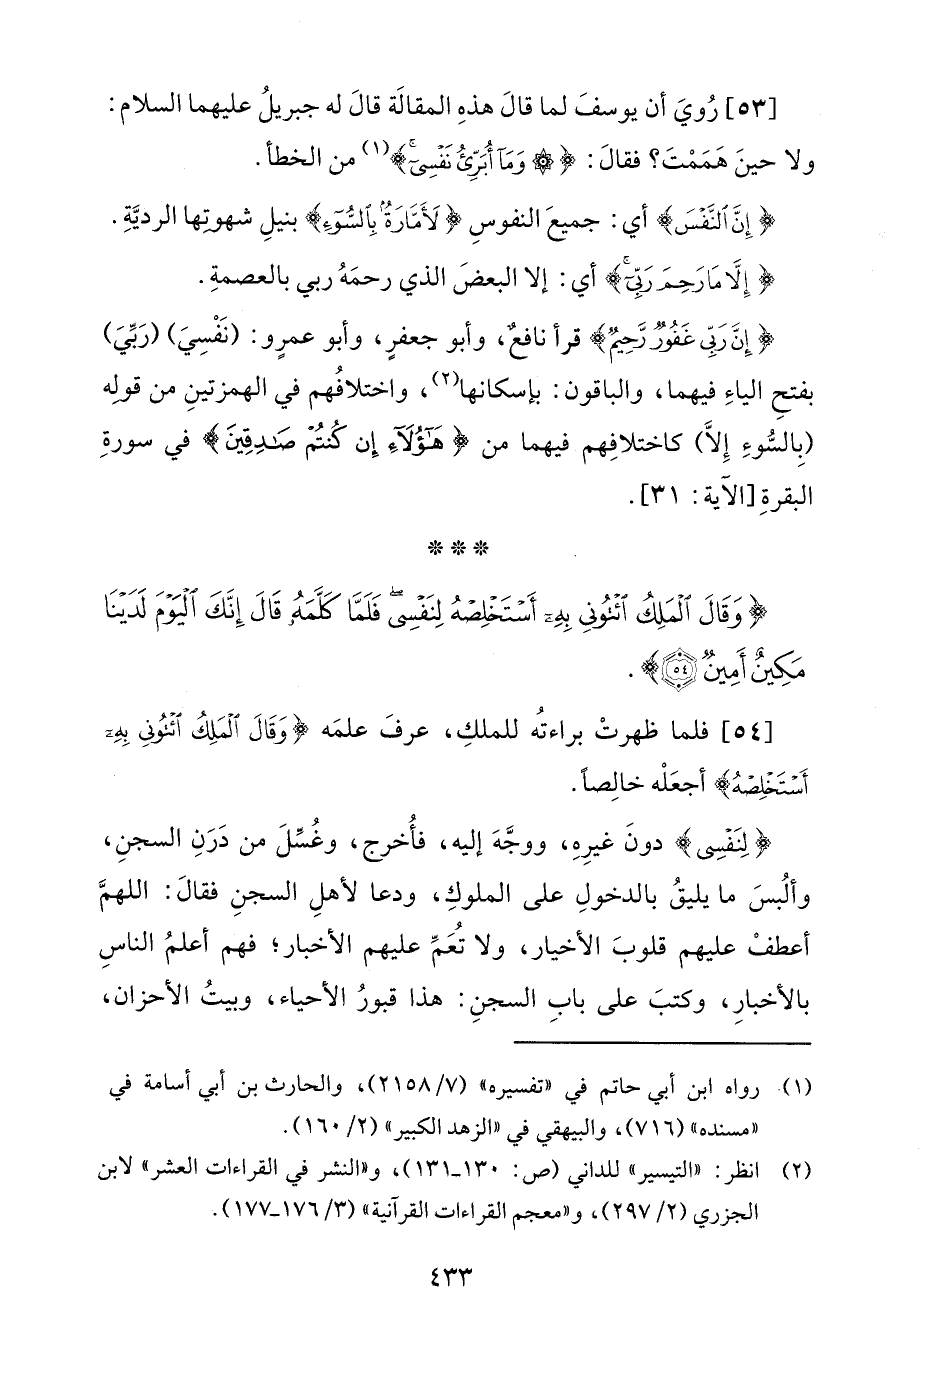 [٥٣] رُويَ أن يوسفَ لما قالَ هذهِ المقالَة قالَ له جبريلُ عليهما السلام:
ولا حينَ هَمَمْتَ؟ فقالَ: ﴿۞ وَمَآ أُبَرِّئُ نَفْسِيٓۚ﴾(١) من الخطأ.
﴿إِنَّ ٱلنَّفْسَ﴾ أي: جميعَ النفوسِ ﴿لَأَمَّارَةُۢ بِٱلسُّوٓءِ﴾ بنيلِ شهوتِها الرديَّةِ.
﴿إِلَّا مَا رَحِمَ رَبِّيٓۚ﴾ أي: إلا البعضَ الذي رحمَهُ ربي بالعصمةِ.
﴿إِنَّ رَبِّي غَفُورٌ رَّحِيمٌ﴾ قرأ نافعٌ، وأبو جعفرٍ، وأبو عمرٍو: (نَفْسِيَ) (رَبِّيَ)
بفتحِ الياءِ فيهما، والباقون: بإسكانها(٢)، واختلافُهم في الهمزتينِ من قولِه
(بِالسُّوءِ إِلاَّ) كاختلافِهم فيهما من ﴿هَٰٓؤُلَآءِ إِن كُنتُمْ صَٰدِقِينَ﴾ في سورةِ
البقرةِ [الآية: ٣١].
* * *
﴿وَقَالَ ٱلْمَلِكُ ٱئْتُونِي بِهِۦٓ أَسْتَخْلِصْهُ لِنَفْسِيۖ فَلَمَّا كَلَّمَهُۥ قَالَ إِنَّكَ ٱلْيَوْمَ لَدَيْنَا
مَكِينٌ أَمِينٌ ٥٤﴾.
[٥٤] فلما ظهرتْ براءتُه للملكِ، عرفَ علمَه ﴿وَقَالَ ٱلْمَلِكُ ٱئْتُونِي بِهِۦٓ
أَسْتَخْلِصْهُ﴾ أجعَلْه خالِصاً.
﴿لِنَفْسِي﴾ دونَ غيرِهِ، ووجَّهَ إليه، فأُخرج، وغُسِّلَ من دَرَنِ السجنِ،
وألُبسَ ما يليقُ بالدخولِ على الملوكِ، ودعا لأهلِ السجنِ فقالَ: اللهمَّ
أعطفْ عليهم قلوبَ الأخيار، ولا تُعَمِّ عليهم الأخبار؛ فهم أعلمُ الناسِ
بالأخبارِ، وكتبَ على بابِ السجنِ: هذا قبورُ الأحياء، وبيتُ الأحزان،
(١) رواه ابن أبي حاتم في «تفسيره» (٧/ ٢١٥٨)، والحارث بن أبي أسامة في
«مسنده» (٧١٦)، والبيهقي في «الزهد الكبير» (٢/ ١٦٠).
(٢) انظر: «التيسير» للداني (ص: ١٣٠ـ١٣١)، و«النشر في القراءات العشر» لابن
الجزري (٢/ ٢٩٧)، و«معجم القراءات القرآنية» (٣/ ١٧٦ـ١٧٧).
٤٣٣